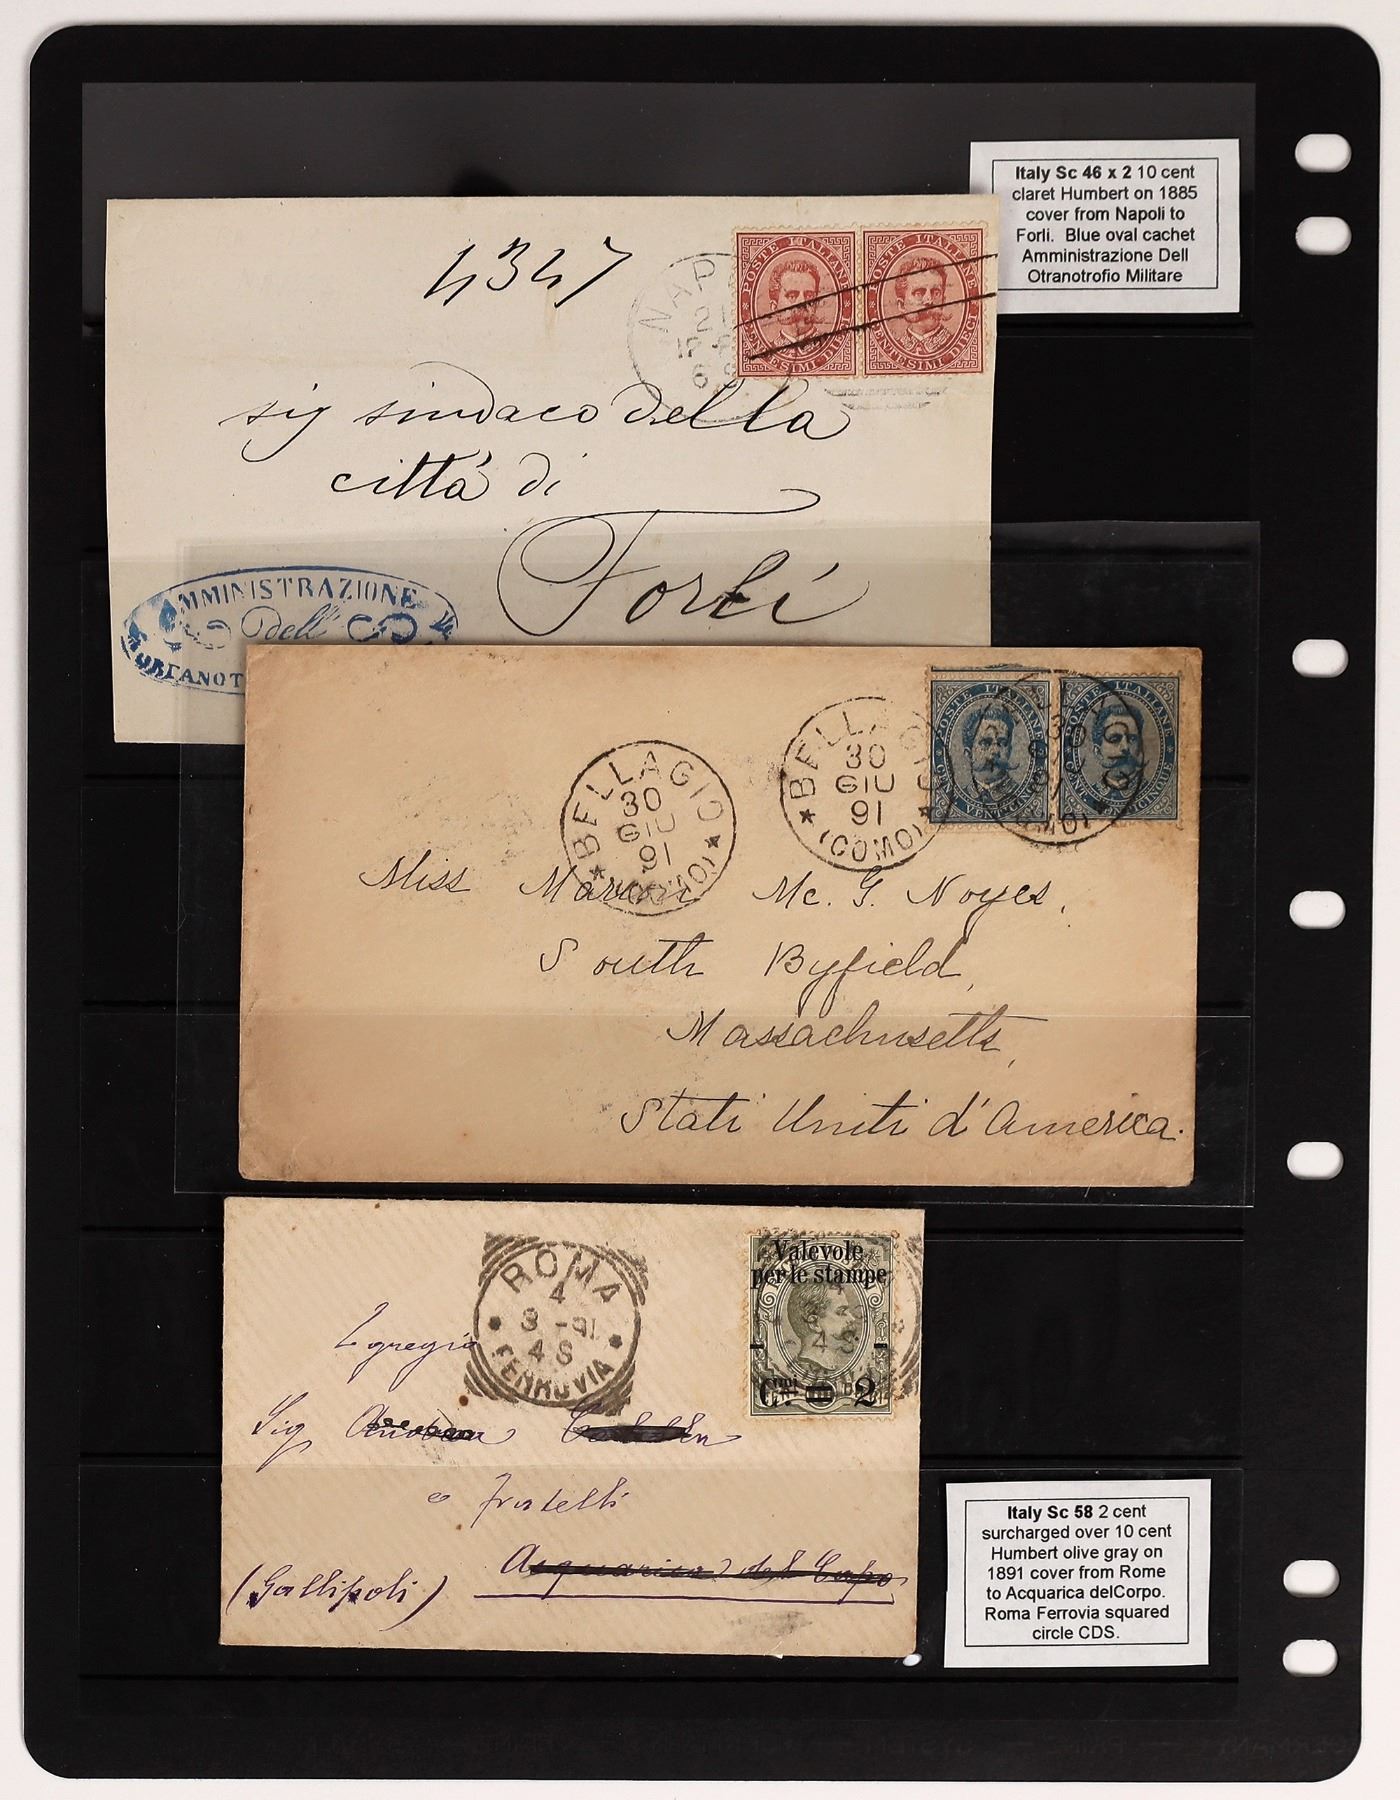 Italy Sc 46 x 2 10 cent
claret Humbert on 1885
cover from Napoli to
Forli. Blue oval cachet
Amministrazione Dell
Otranotrofio Militare
4347
NAP
POSTE ITALIANE
CENTESIMI DIECI
POSTE ITALIANE
CENTESIMI DIECI
sig sindaco della
città di
Forlí
AMMINISTRAZIONE
dell'
ORFANOT
POSTE ITALIANE
POSTE ITALIANE
BELLAGIO
30
GIU
91
(COMO)
BELLAGIO
30
GIU
91
(COMO)
Miss Marion Mc. G. Noyes,
South Byfield,
Massachusetts,
Stati Uniti d'America.
ROMA
4
3 - 91
4 S
FERROVIA
Valevole
per le stampe
Cmi 2
Egregio
Sig
e fratelli
(Gallipoli) Acquarica del Capo
Italy Sc 58 2 cent
surcharged over 10 cent
Humbert olive gray on
1891 cover from Rome
to Acquarica delCorpo.
Roma Ferrovia squared
circle CDS.